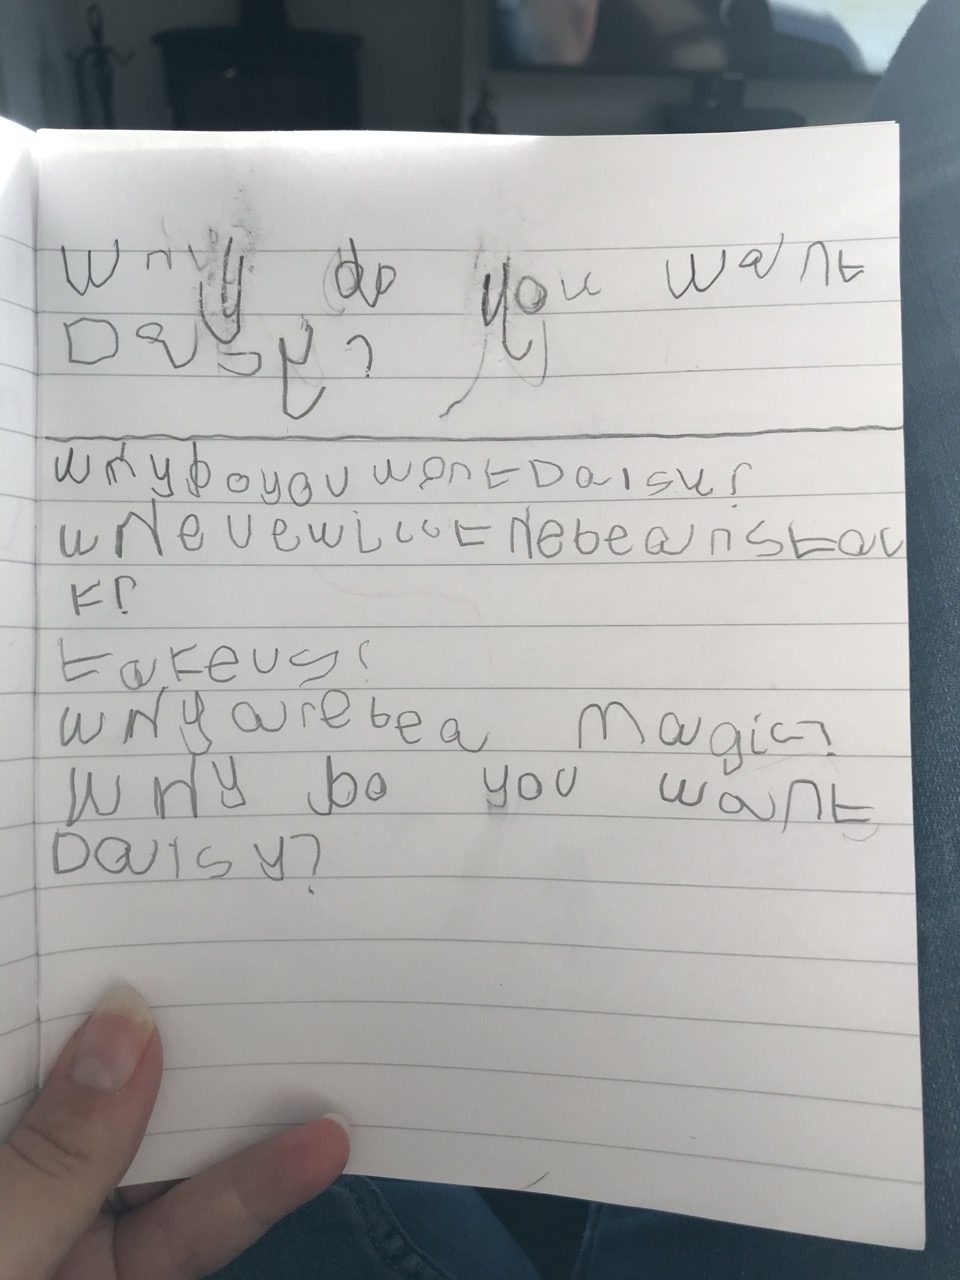 Why do you want
Daisy?
whydoyouwantDaisy?
wheuewillthebeanstar
k?
takeus?
whyarebea magic?
why do you want
Daisy?